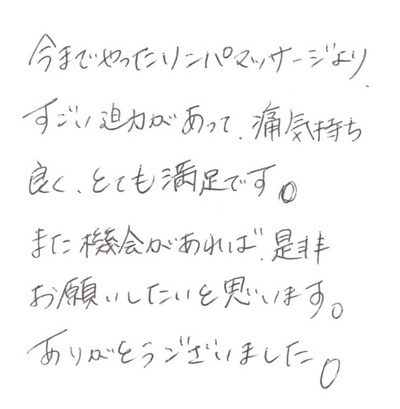 今までやったリンパマッサージより、
すごい迫力があって、痛気持ち
良く、とても満足です。
また機会があれば、是非
お願いしたいと思います。
ありがとうございました。